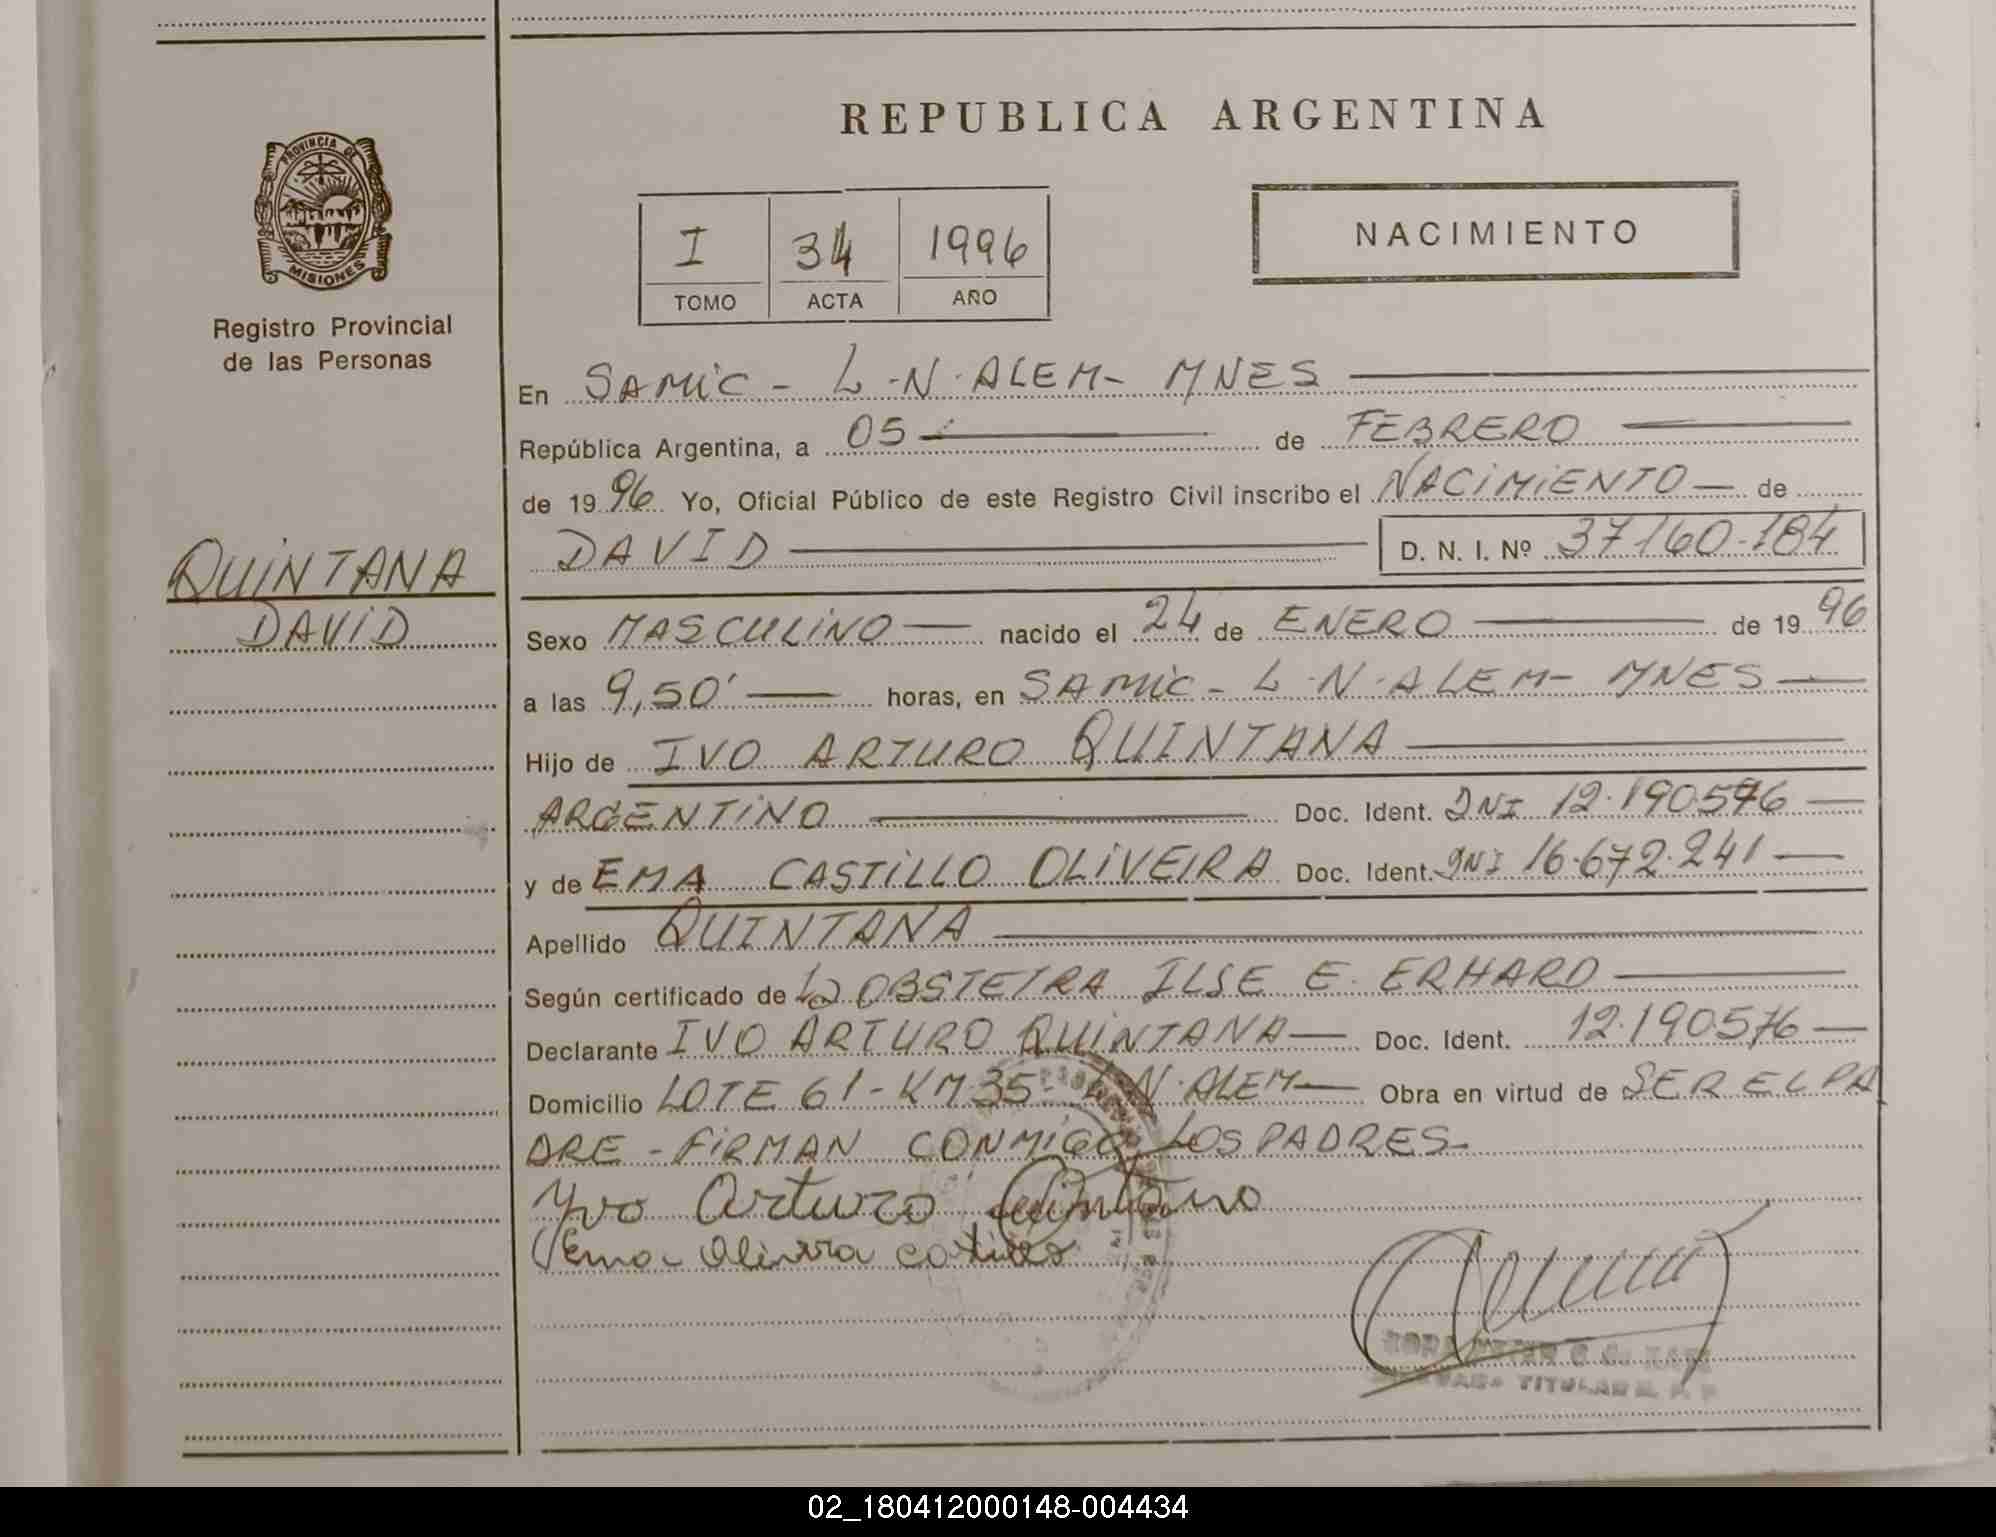 REPUBLICA ARGENTINA
PROVINCIA DE
MISIONES
Registro Provincial
de las Personas
I 34 1996
TOMO ACTA AÑO
NACIMIENTO
En SAMIC - L.N. ALEM - MNES
República Argentina, a 05 de FEBRERO
de 1996 Yo, Oficial Público de este Registro Civil inscribo el NACIMIENTO de
DAVID D. N. I. Nº 37160.184
QUINTANA
DAVID
Sexo MASCULINO nacido el 24 de ENERO de 1996
a las 9,50' horas, en SAMIC - L.N. ALEM - MNES
Hijo de IVO ARTURO QUINTANA
ARGENTINO Doc. Ident. DNI 12.190576
y de EMA CASTILLO OLIVEIRA Doc. Ident. DNI 16.672.241
Apellido QUINTANA
Según certificado de La OBSTETRA ILSE E. ERHARD
Declarante IVO ARTURO QUINTANA Doc. Ident. 12.190576
Domicilio LOTE 61 - KM 35 L.N. ALEM Obra en virtud de SER EL PA
DRE - FIRMAN CONMIGO LOS PADRES
Yvo Arturo Quintana
Ema Olivera Castillo
TITULAR
02_180412000148-004434